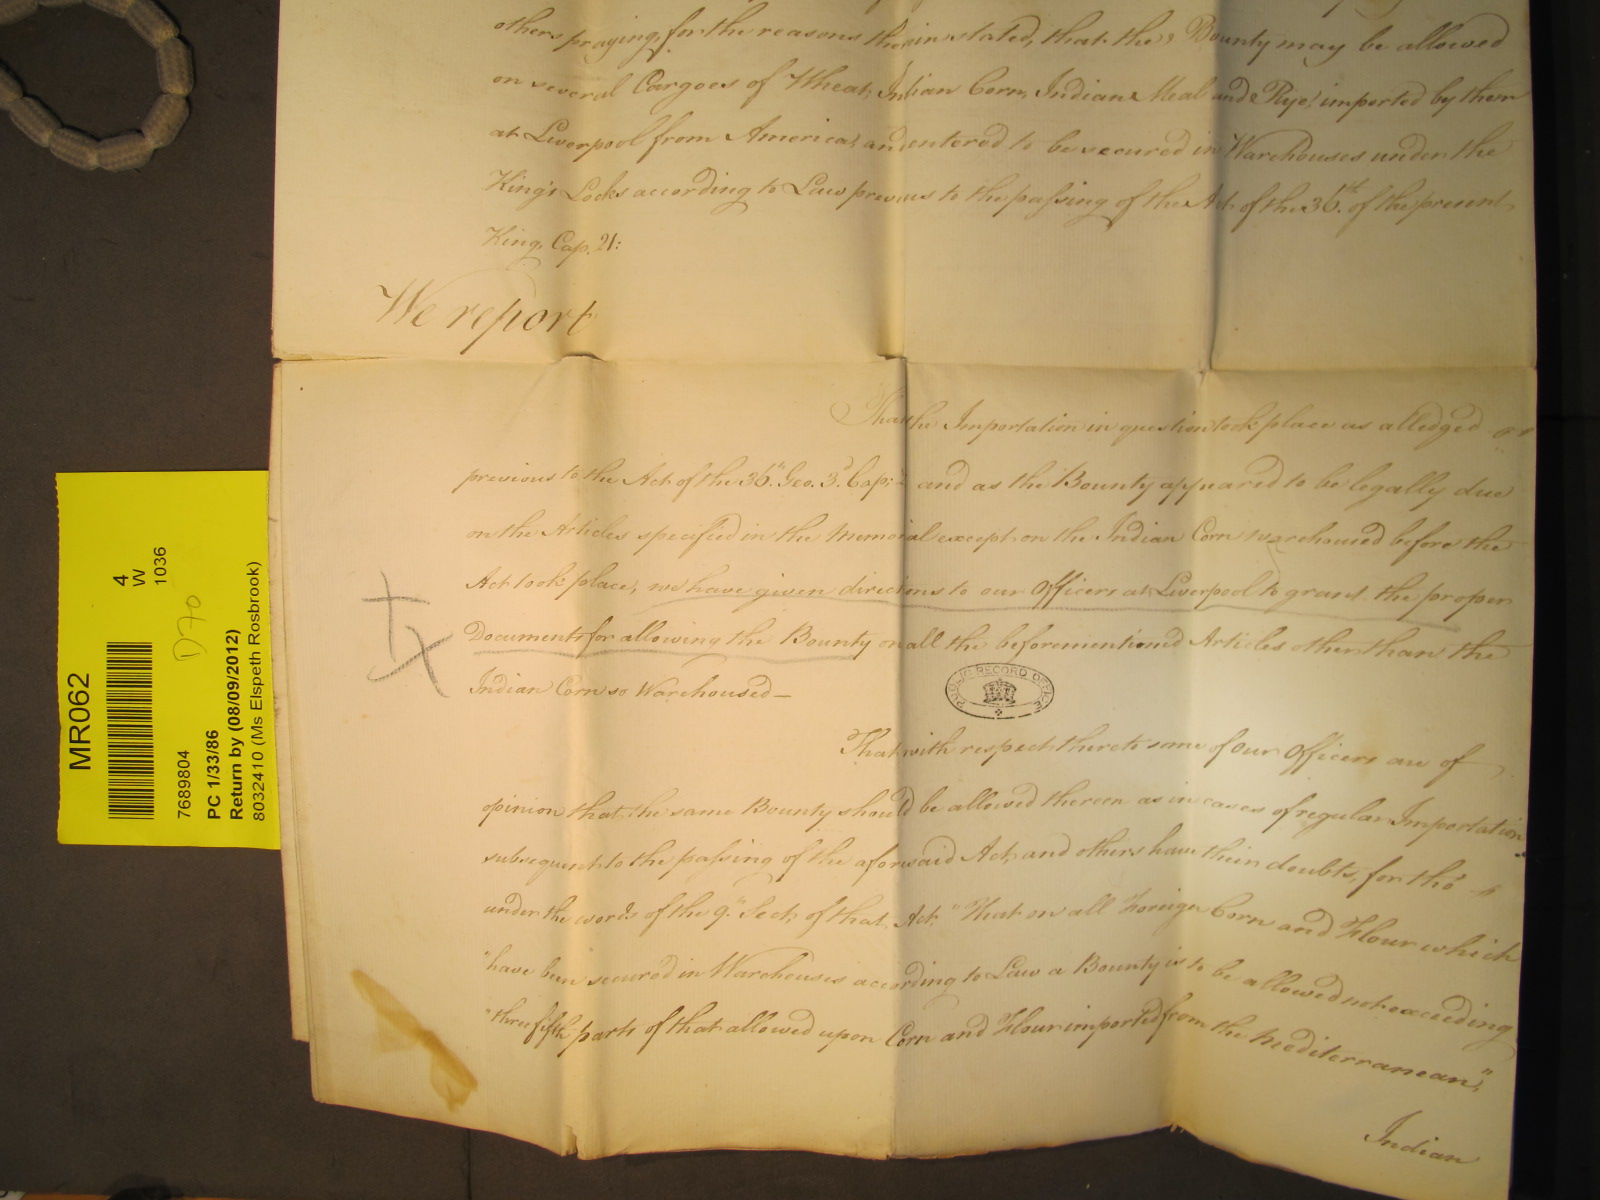 others praying, for the reasons therein stated, that the Bounty may be allowed
on several Cargoes of Wheat, Indian Corn, Indian Meal and Rye, imported by them
at Liverpool from America, and entered to be secured in Warehouses under the
King's Locks according to Law previous to the passing of the Act of the 36.th of the present
King, Cap. 21:
We report
That the Importation in question took place as alledged
previous to the Act of the 36.th Geo. 3.d Cap: and as the Bounty appeared to be legally due
on the Articles specified in the Memorial except on the Indian Corn warehoused before the
Act took place, we have given directions to our Officers at Liverpool to grant the proper
Documents for allowing the Bounty on all the beforementioned Articles other than the
Indian Corn so Warehoused—
PUBLIC RECORD OFFICE
That with respect thereto some of our Officers are of
opinion that the same Bounty should be allowed thereon as in cases of regular Importation
subsequent to the passing of the aforesaid Act, and others have their doubts, for tho'
under the words of the 9.th Sect. of that Act "That on all Foreign Corn and Flour which
"have been secured in Warehouses according to Law a Bounty is to be allowed not exceeding
"three fifth parts of that allowed upon Corn and Flour imported from the Mediterranean",
Indian
MR062
4
W
1036
7689804
D70
PC 1/33/86
Return by (08/09/2012)
8032410 (Ms Elspeth Rosbrook)